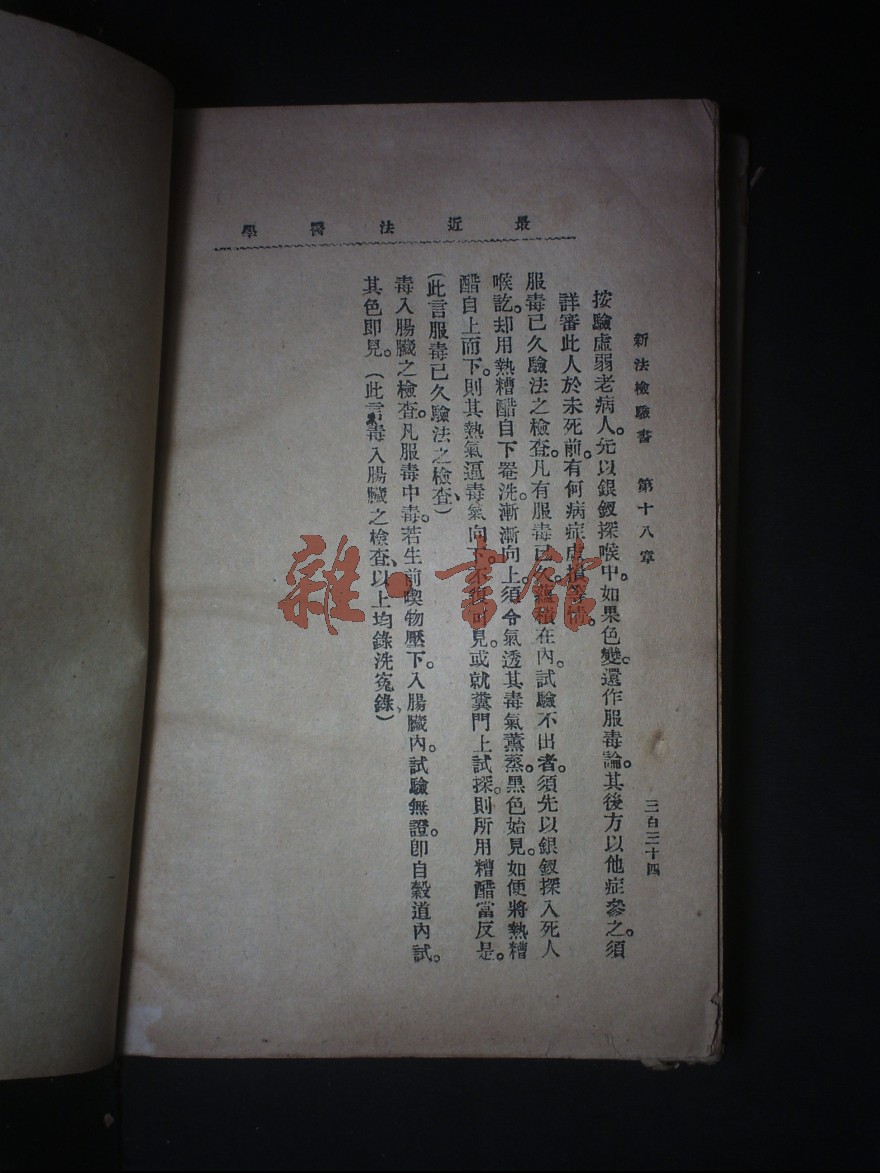 最近法醫學
新法檢驗書 第十八章 三百三十四
按驗虛弱老病人。先以銀釵探喉中。如果色變。還作服毒論。其後方以他症參之。須
詳審此人於未死前。有何病症
服毒已久驗法之檢查。凡有服毒已久。在內。試驗不出者。須先以銀釵探入死人
喉訖。却用熱糟醋自下罨洗。漸漸向上。須令氣透其毒氣薰蒸。黑色始見。如便將熱糟
醋自上而下。則其熱氣逼毒氣向下。不復可見。或就糞門上試探。則所用糟醋當反是。
(此言服毒已久驗法之檢查、)
毒入腸臟之檢查。凡服毒中毒。若生前喫物壓下。入腸臟內。試驗無證。卽自穀道內試。
其色卽見。(此言毒入腸臟之檢查、以上均錄洗冤錄、)
雜·書館